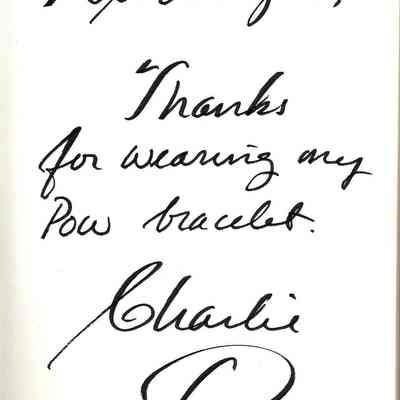 Thanks
for wearing my
Pow bracelet.
Charlie